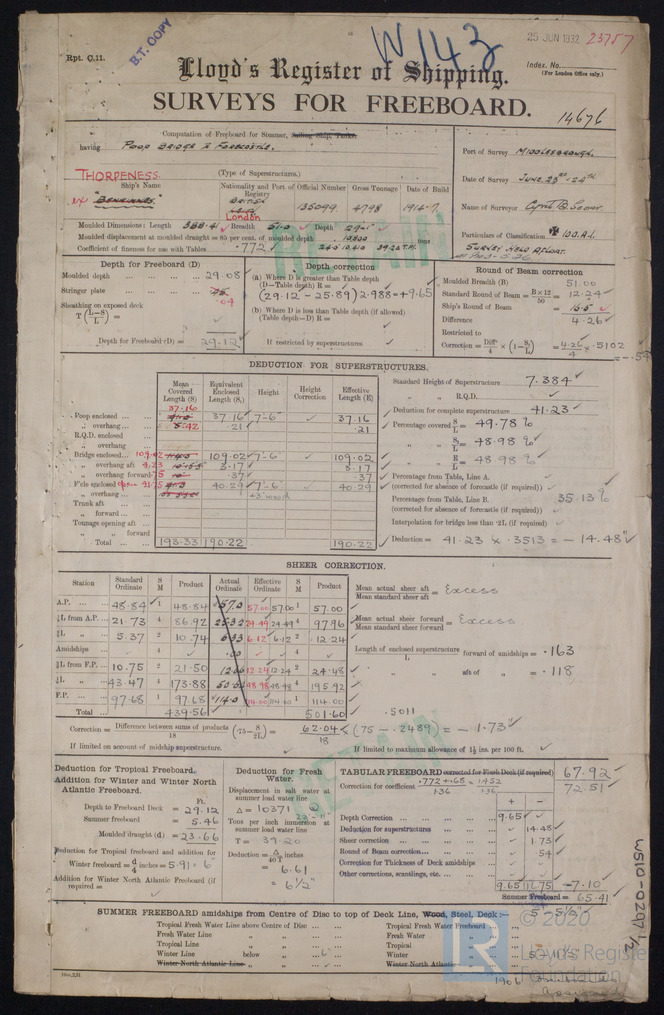 25 JUN 1932 23757
Rpt. C.11.
B.T. COPY
W143
Index. No.
(For London Office only.)
Lloyd's Register of Shipping.
SURVEYS FOR FREEBOARD.
14676
Computation of Freeboard for Steamer, Sailing Ship, Tanker
having Poop Bridge & Forecastle.
(Type of Superstructures.)
THORPENESS.
Ship's Name
Nationality and Port of Registry
Official Number
Gross Tonnage
Date of Build
ex
British
London
135099
4798
1914-7
Moulded Dimensions: Length 388.41 Breadth 51.0 Depth 29-1
Moulded displacement at moulded draught = 85 per cent. of moulded depth tons
Coefficient of fineness for use with Tables .772
Port of Survey Middlesbrough.
Date of Survey June 23rd & 24th
Name of Surveyor
Particulars of Classification ✠ 100.A.1.
Survey held afloat.
RETAIN
Depth for Freeboard (D)
Moulded depth 29.08
Stringer plate .04
Sheathing on exposed deck
T (L-S/L) =
Depth for Freeboard (D) = 29.12
Depth correction
(a) Where D is greater than Table depth
(D—Table depth) R =
(29.12 - 25.89) 2.988 = +9.65
(b) Where D is less than Table depth (if allowed)
(Table depth—D) R =
If restricted by superstructures
Round of Beam correction
Moulded Breadth (B) 51.00
Standard Round of Beam = B×12/50 = 12.24
Ship's Round of Beam = 16.5
Difference 4.26
Restricted to
Correction = Diff/4 × (1 - S1/L) = 4.26/4 × .5102 = -.54
DEDUCTION FOR SUPERSTRUCTURES.
Mean Covered Length (S)
Equivalent Enclosed Length (S1)
Height
Height Correction
Effective Length (E)
Poop enclosed 37.16 37.16 7'-6" 37.16
" overhang .42 .21 .21
R.Q.D. enclosed
" overhang
Bridge enclosed 109.02 109.02 7'-6" 109.02
" overhang aft 4.23 3.17 3.17
" overhang forward .75 .37 .37
F'cle enclosed 41.75 40.29 7'-6" 40.29
" overhang
Trunk aft
" forward
Tonnage opening aft
" " forward
Total 193.33 190.22 190.22
Standard Height of Superstructure 7.384
" " R.Q.D.
Deduction for complete superstructure 41.23
Percentage covered S/L = 49.78%
" " S1/L = 48.98%
" " E/L = 48.98%
Percentage from Table, Line A.
(corrected for absence of forecastle (if required))
Percentage from Table, Line B. 35.13%
(corrected for absence of forecastle (if required))
Interpolation for bridge less than ·2L (if required)
Deduction = 41.23 × .3513 = -14.48"
SHEER CORRECTION.
Station
Standard Ordinate
S M
Product
Actual Ordinate
Effective Ordinate
S M
Product
A.P. 48.84 1 48.84 57.0 57.00 57.00 1 57.00
¼L from A.P. 21.73 4 86.92 24.49 24.49 4 97.96
¼L " 5.37 2 10.74 6.12 6.12 2 12.24
Amidships 4 .00 4
¼L from F.P. 10.75 2 21.50 12.24 12.24 2 24.48
¼L " 43.47 4 173.88 48.98 48.98 4 195.92
F.P. 97.68 1 97.68 114.0 114.00 114.00 1 114.00
Total 439.56 501.60
Mean actual sheer aft / Mean standard sheer aft = Excess
Mean actual sheer forward / Mean standard sheer forward = Excess
Length of enclosed superstructure / L forward of amidships = .163
" " aft of " = .118
Correction = Difference between sums of products / 18 (·75 - S/2L) = 62.04/18 (.75 - .2489) = -1.73"
.5011
If limited on account of midship superstructure.
If limited to maximum allowance of 1½ ins. per 100 ft.
RETAIN
Deduction for Tropical Freeboard.
Addition for Winter and Winter North Atlantic Freeboard.
Ft.
Depth to Freeboard Deck = 29.12
Summer freeboard = 5.46
Moulded draught (d) = 23.66
Deduction for Tropical freeboard and addition for
Winter freeboard = d/4 inches = 5.91 = 6"
Addition for Winter North Atlantic Freeboard (if required) =
Deduction for Fresh Water.
Displacement in salt water at summer load water line
Δ = 10371
Tons per inch immersion at summer load water line
T = 39.20
Deduction = Δ/40T inches
= 6.61
= 6½"
TABULAR FREEBOARD corrected for Flush Deck (if required) 67.92
Correction for coefficient .772+.68/1.36 = 1.452/1.36 72.51
+ -
Depth Correction 9.65
Deduction for superstructures 14.48
Sheer correction 1.73
Round of Beam correction .54
Correction for Thickness of Deck amidships
Other corrections, scantlings, etc.
9.65 16.75 -7.10
Summer Freeboard = 65.41
W510-0297 1/2
SUMMER FREEBOARD amidships from Centre of Disc to top of Deck Line, Wood, Steel, Deck :— 5' 5½"
Tropical Fresh Water Line above Centre of Disc
Fresh Water Line " "
Tropical Line " "
Winter Line below "
Winter North Atlantic Line "
Tropical Fresh Water Freeboard
Fresh Water "
Tropical "
Winter " 5' 11½"
Winter North Atlantic "
© 2020
Lloyd's Register
Foundation
LR
1906